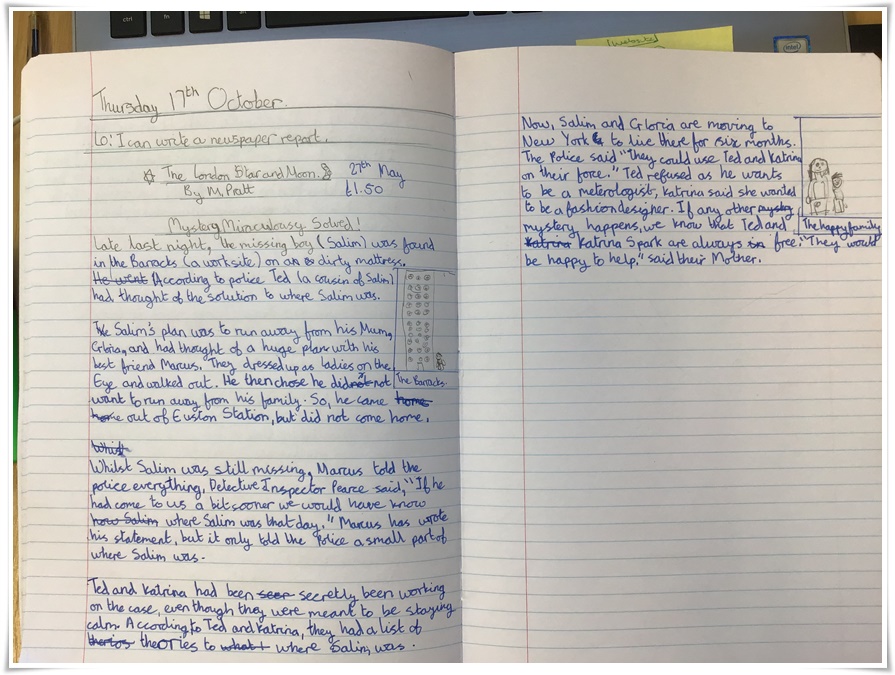 ctrl
fn
alt
[Website]
intel
Thursday 17th October.
Lo: I can write a newspaper report.
The London Star and Moon. 27th May
By M. Pratt £1.50
Mystery Miraculousy Solved!
Late last night, the missing boy (Salim) was found
in the Barocks (a work site) on a dirty mattress.
He went According to police Ted (a cousin of Salim)
had thought of the solution to where Salim was.
Salim's plan was to run away from his Mum,
Gloria, and had thought of a huge plan with his
best friend Marcus. They dressed up as ladies on the
Eye and walked out. He then chose he did not
want to run away from his family. So, he came home
home out of Euston Station, but did not come home.
The Barocks.
Whilst
Whilst Salim was still missing, Marcus told the
police everything, Detective Inspector Pearce said, "If he
had come to us a bit sooner we would have know
how Salim where Salim was that day." Marcus has wrote
his statement, but it only told the Police a small part of
where Salim was.
Ted and Katrina had been secretly been working
on the case, even though they were meant to be staying
calm. According to Ted and Katrina, they had a list of
theories to what where Salim was.
Now, Salim and Gloria are moving to
New York to live there for six months.
The Police said "They could use Ted and Katrina
on their force." Ted refused as he wants
to be a meterologist, Katrina said she wanted
to be a fashion designer. If any other
mystery happens, we know that Ted and
Katrina Katrina Spark are always in free. "They would
be happy to help." said their Mother.
The happy family